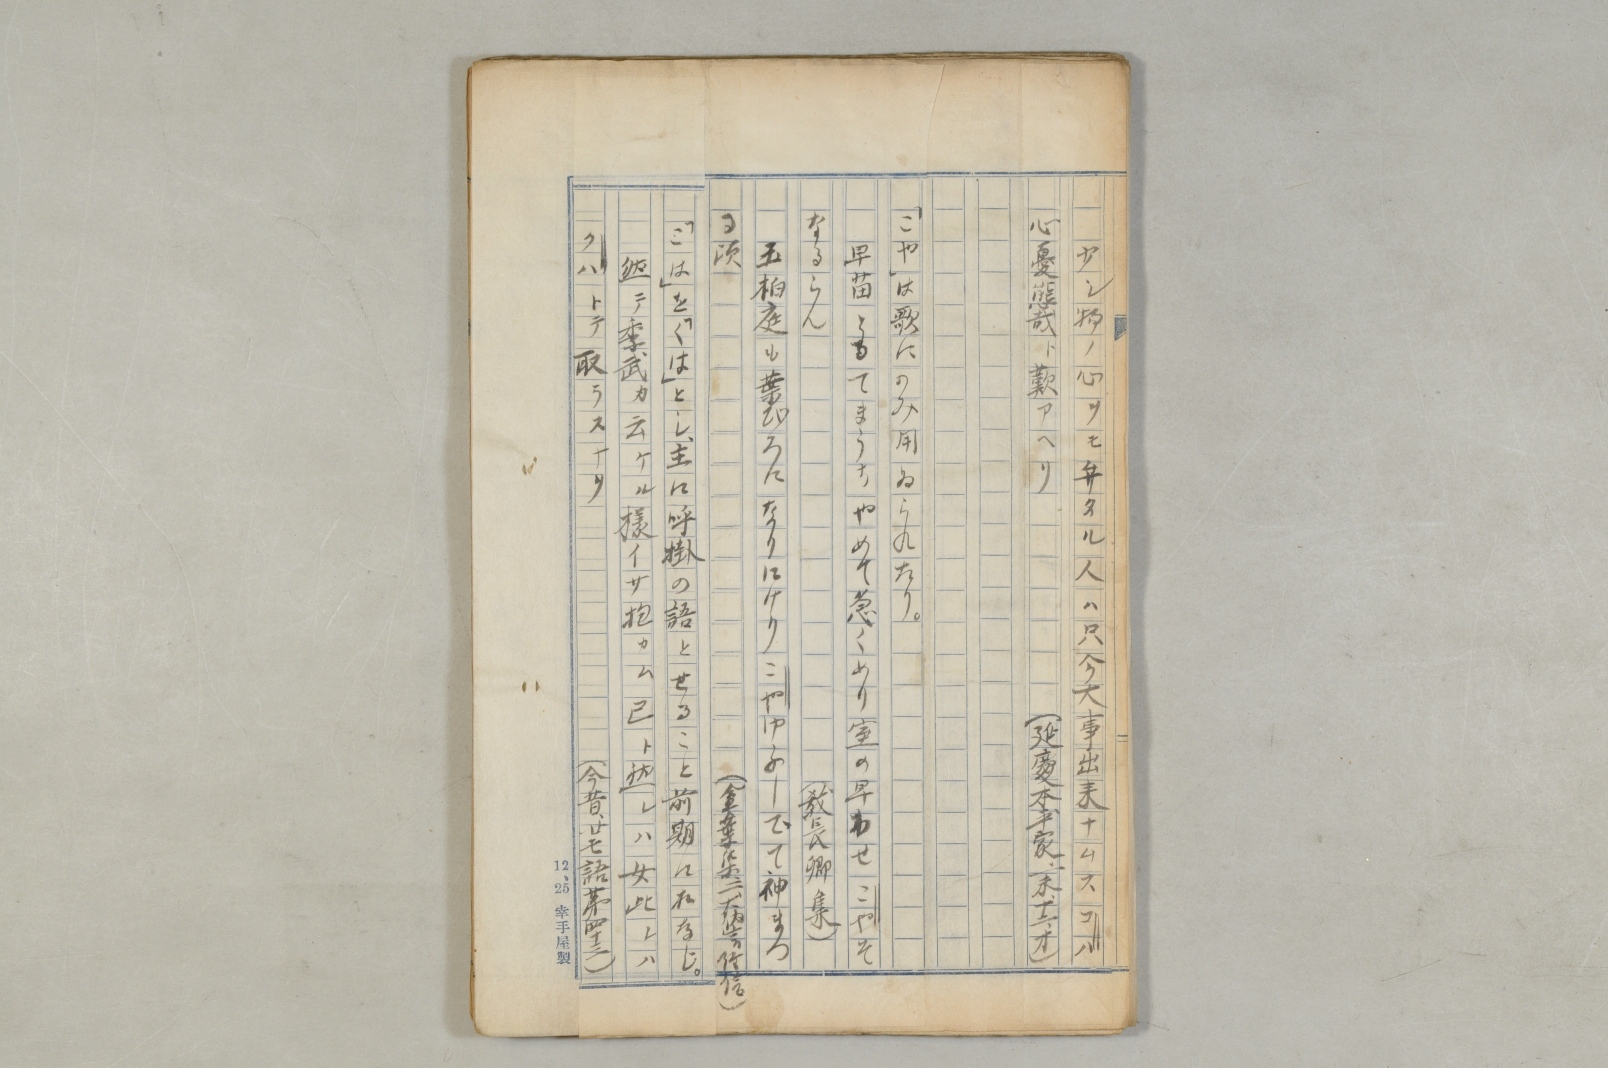 少シ物ノ心ヲモ弁タル人ハ只今大事出来ナムスコハ
心憂態哉ト歎アヘリ（延慶本平家、二末、十二オ）
「こや」は歌にのみ用ゐられたり。
早苗とるてまうちやめて急くめり室の早わせこやそ
なるらん（教長卿集）
玉柏庭も葉びろになりにけりこやゆふしでて神まつ
る頃（金葉集二、大納言経信）
「こは」を「くは」とし、主に呼掛の語とせること前期におなじ。
然テ季武カ云ケル様イサ抱カム己ト然レハ女此レハ
クハトテ取ラスナリ（今昔、廿七語第四十三）
12、25 幸手屋製